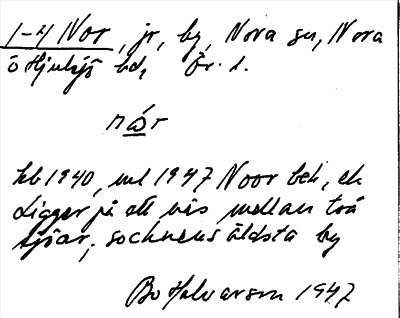 1-4 Nor, jr, by, Nora sn, Nora
o Hjulsjö bd, Ör. l.
nór
hb 1940, ml 1947 Noor beb, ek
Ligger på ett näs mellan två
sjöar, socknens äldsta by
Bo Halvarson 1947